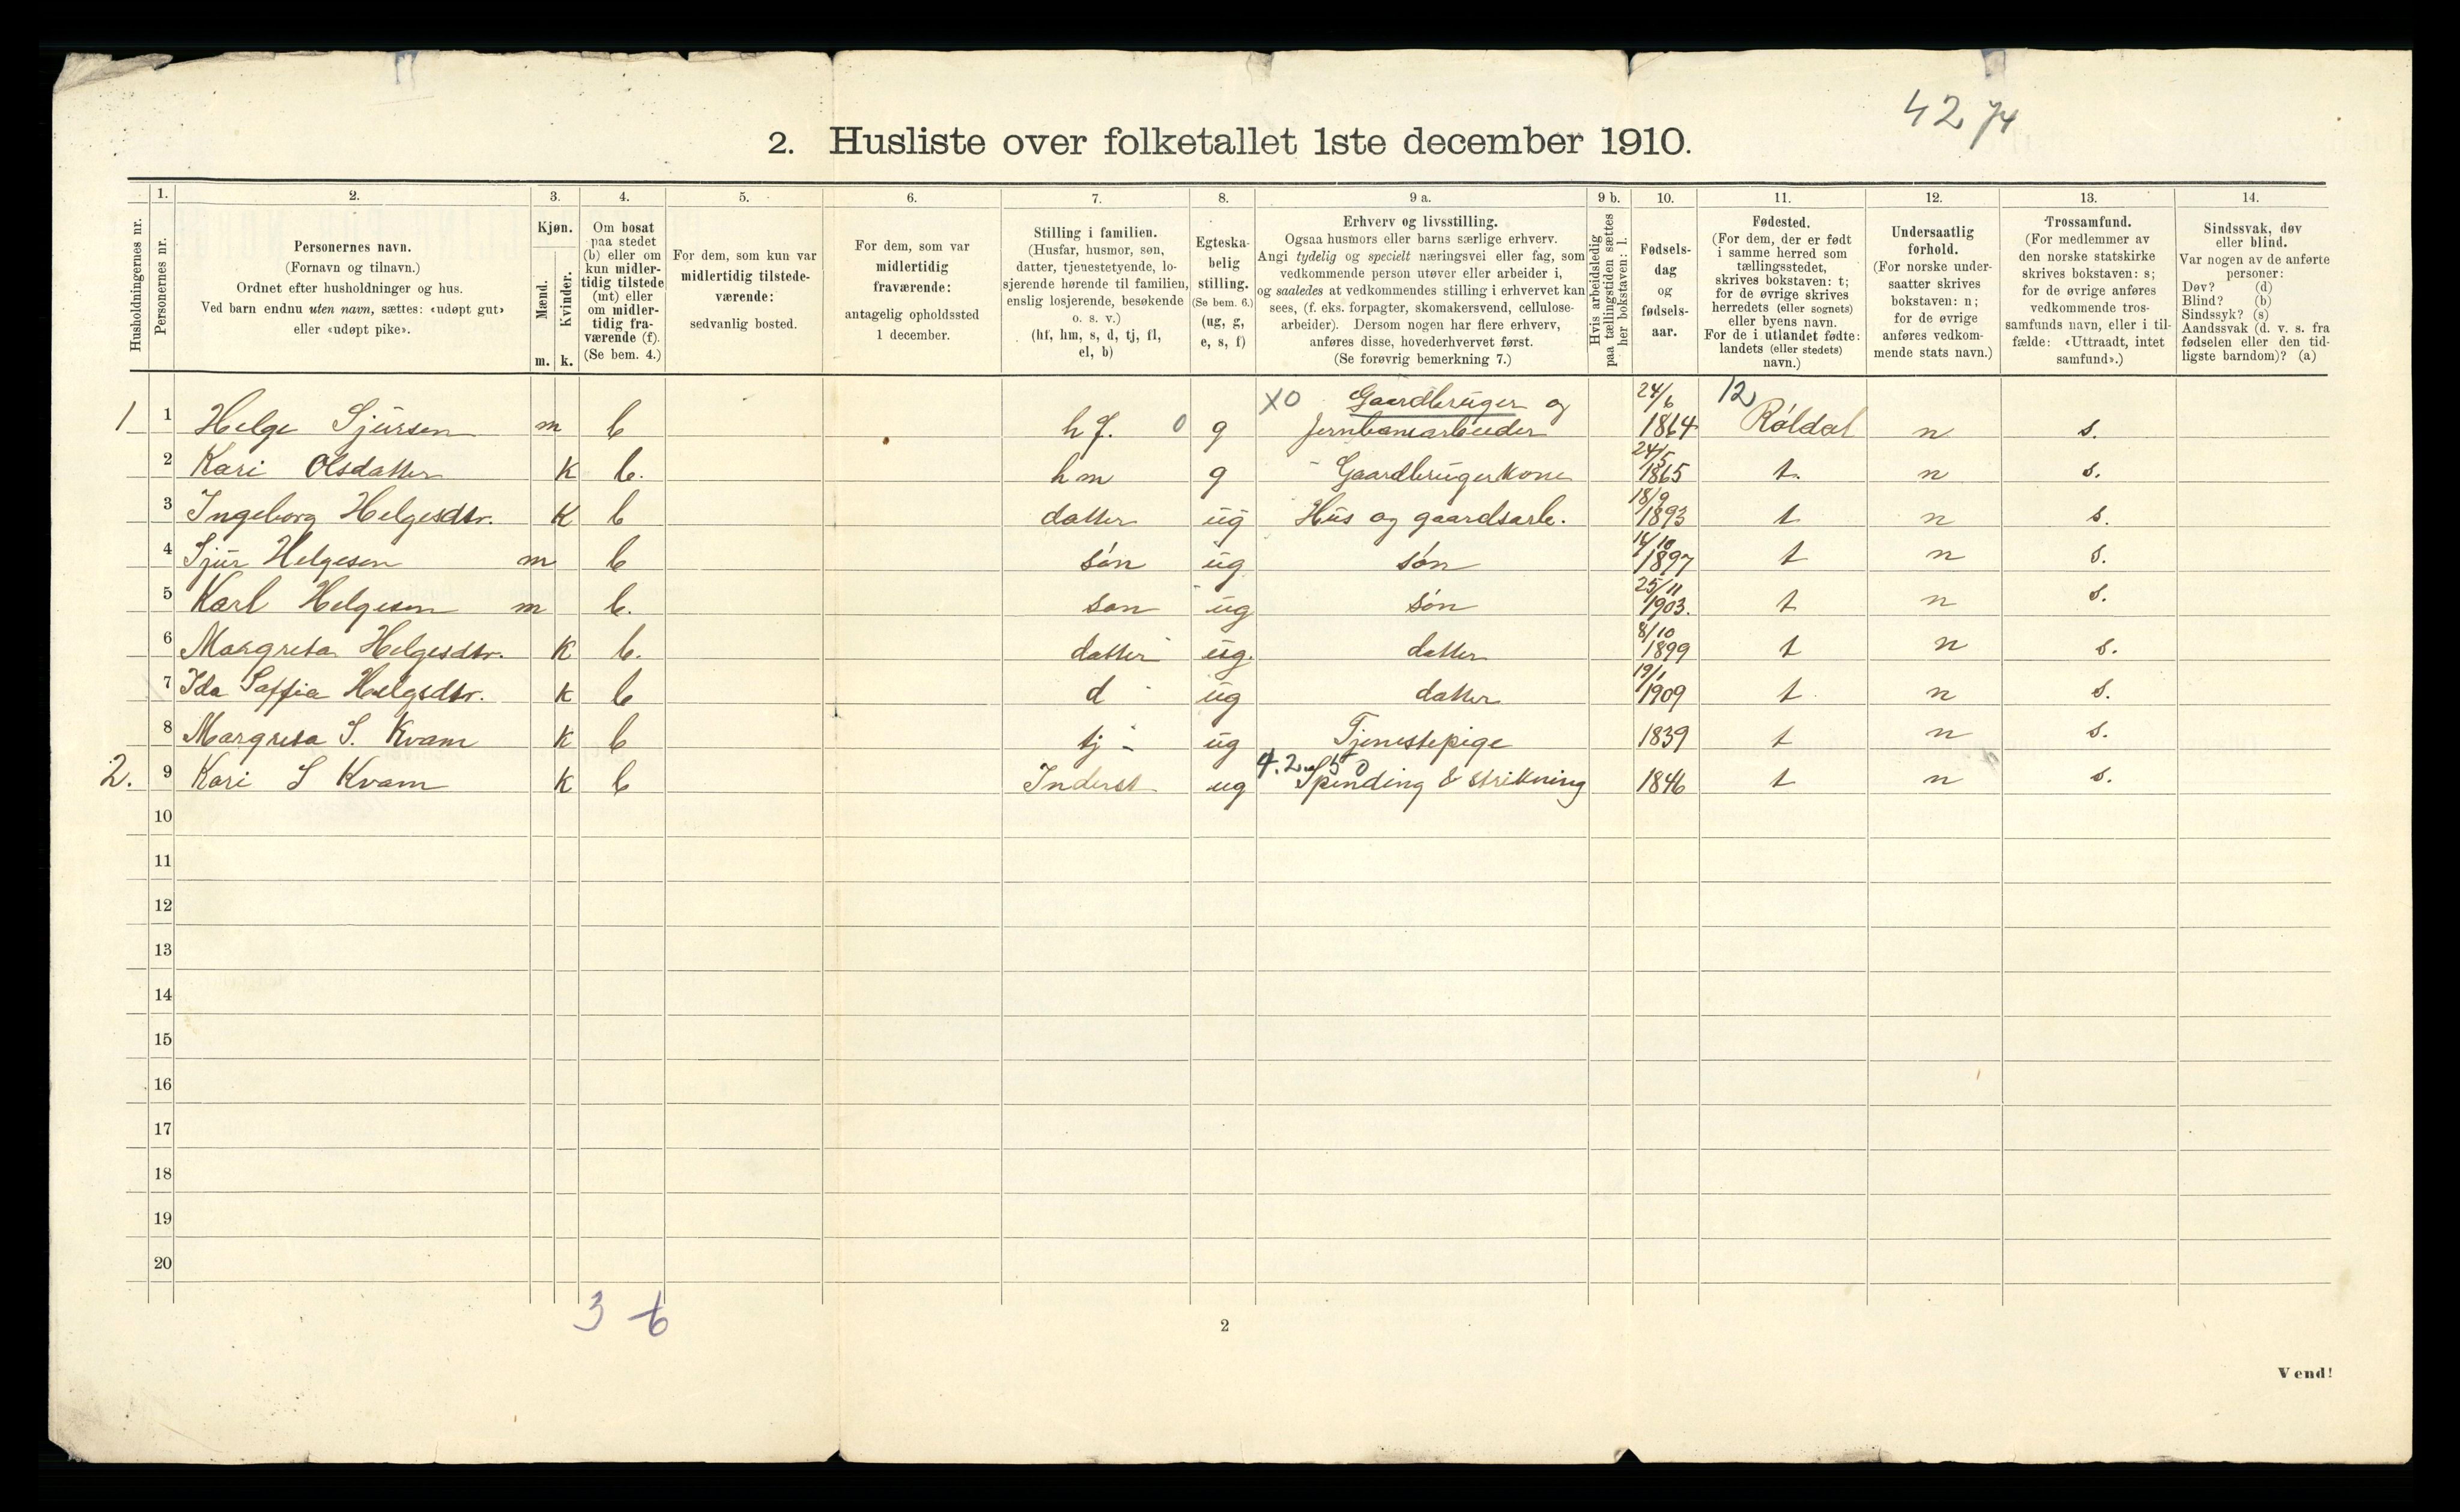 42 74
2. Husliste over folketallet 1ste december 1910.
Husholdningernes nr.
1. Personernes nr.
2. Personernes navn.
(Fornavn og tilnavn.)
Ordnet efter husholdninger og hus.
Ved barn endnu uten navn, sættes: «udøpt gut»
eller «udøpt pike».
3. Kjøn.
Mænd. Kvinder.
m. k.
4. Om bosat
paa stedet
(b) eller om
kun midler-
tidig tilstede
(mt) eller
om midler-
tidig fra-
værende (f).
(Se bem. 4.)
5. For dem, som kun var
midlertidig tilstede-
værende:
sedvanlig bosted.
6. For dem, som var
midlertidig
fraværende:
antagelig opholdssted
1 december.
7. Stilling i familien.
(Husfar, husmor, søn,
datter, tjenestetyende, lo-
sjerende hørende til familien,
enslig losjerende, besøkende
o. s. v.)
(hf, hm, s, d, tj, fl,
el, b)
8. Egteska-
belig
stilling.
(Se bem. 6.)
(ug, g,
e, s, f)
9 a. Erhverv og livsstilling.
Ogsaa husmors eller barns særlige erhverv.
Angi tydelig og specielt næringsvei eller fag, som
vedkommende person utøver eller arbeider i,
og saaledes at vedkommendes stilling i erhvervet kan
sees, (f. eks. forpagter, skomakersvend, cellulose-
arbeider). Dersom nogen har flere erhverv,
anføres disse, hovederhvervet først.
(Se forøvrig bemerkning 7.)
9 b. Hvis arbeidsledig
paa tællingstiden sættes
her bokstaven: l.
10. Fødsels-
dag
og
fødsels-
aar.
11. Fødested.
(For dem, der er født
i samme herred som
tællingsstedet,
skrives bokstaven: t;
for de øvrige skrives
herredets (eller sognets)
eller byens navn.
For de i utlandet fødte:
landets (eller stedets)
navn.)
12. Undersaatlig
forhold.
(For norske under-
saatter skrives
bokstaven: n;
for de øvrige
anføres vedkom-
mende stats navn.)
13. Trossamfund.
(For medlemmer av
den norske statskirke
skrives bokstaven: s;
for de øvrige anføres
vedkommende tros-
samfunds navn, eller i til-
fælde: «Uttraadt, intet
samfund».)
14. Sindssvak, døv
eller blind.
Var nogen av de anførte
personer:
Døv? (d)
Blind? (b)
Sindssyk? (s)
Aandssvak (d. v. s. fra
fødselen eller den tid-
ligste barndom)? (a)
XO Gaardbruger og 24/6 12
1 1 Helge Sjursen m b hf. 0 g Jernbanearbeider 1864 Røldal n s.
2 Kari Olsdatter k b. hm g Gaardbrugerkone 24/5 1865 t. n s.
3 Ingeborg Helgesdtr. k b datter ug Hus og gaardsarb. 18/9 1893 t n s.
4 Sjur Helgesen m b søn ug søn 14/10 1897 t n s.
5 Karl Helgesen m b. søn ug søn 25/11 1903. t n s.
6 Margreta Helgesdtr. k b. datter ug. datter 8/10 1899 t n s.
7 Ida Saffia Helgsdtr. k b d ug datter 19/1 1909 t n s.
8 Margreta S. Kvam k b tj - ug Tjenestepige 1839 t n s.
2. 9 Kari S Kvam k b Inderst ug Spinding & strikning 1846 t n s.
10
11
12
13
14
15
16
17
18
19
20
3 6
2
Vend!